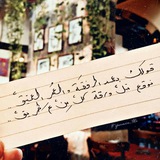 قولك بعد الرفقة والعمر العتيق
نوقع مثل ورقة كل من عَ طريق